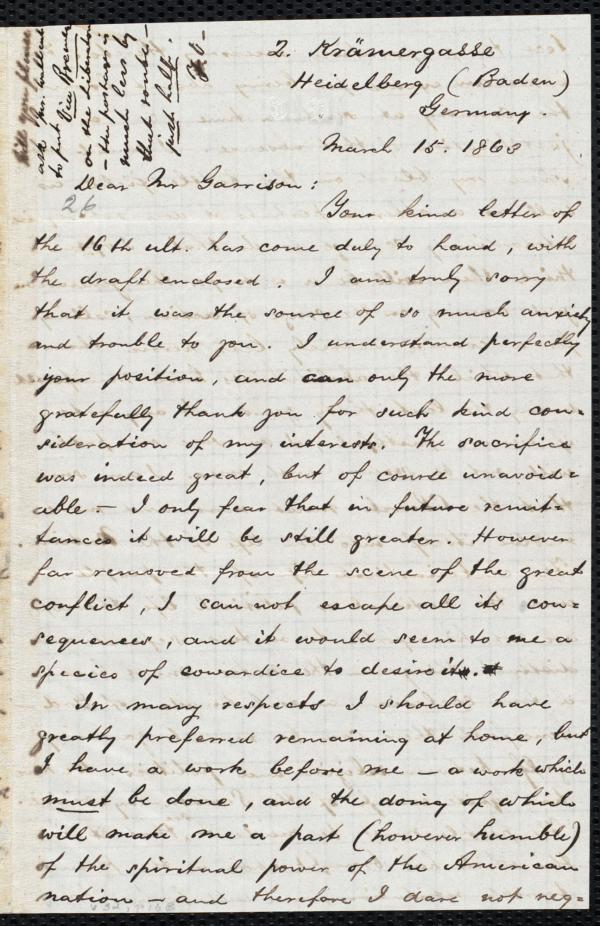 Will you please
ask Mr. Wallcut
to put Via Bremen
on the Liberator
- the postage is
much less by
that route -
just half.
2. Krämergasse
Heidelberg (Baden)
Germany.
March 15. 1863
Dear Mr Garrison:
26
Your kind letter of
the 16th ult. has come duly to hand, with
the draft enclosed. I am truly sorry
that it was the source of so much anxiety
and trouble to you. I understand perfectly
your position, and can only the more
gratefully thank you for such kind con=
sideration of my interests. The sacrifice
was indeed great, but of course unavoid=
able - I only fear that in future remit=
tances it will be still greater. However
far removed from the scene of the great
conflict, I can not escape all its con=
sequences, and it would seem to me a
species of cowardice to desire it.
In many respects I should have
greatly preferred remaining at home, but
I have a work before me - a work which
must be done, and the doing of which
will make me a part (however humble)
of the spiritual power of the American
nation - and therefore I dare not neg=